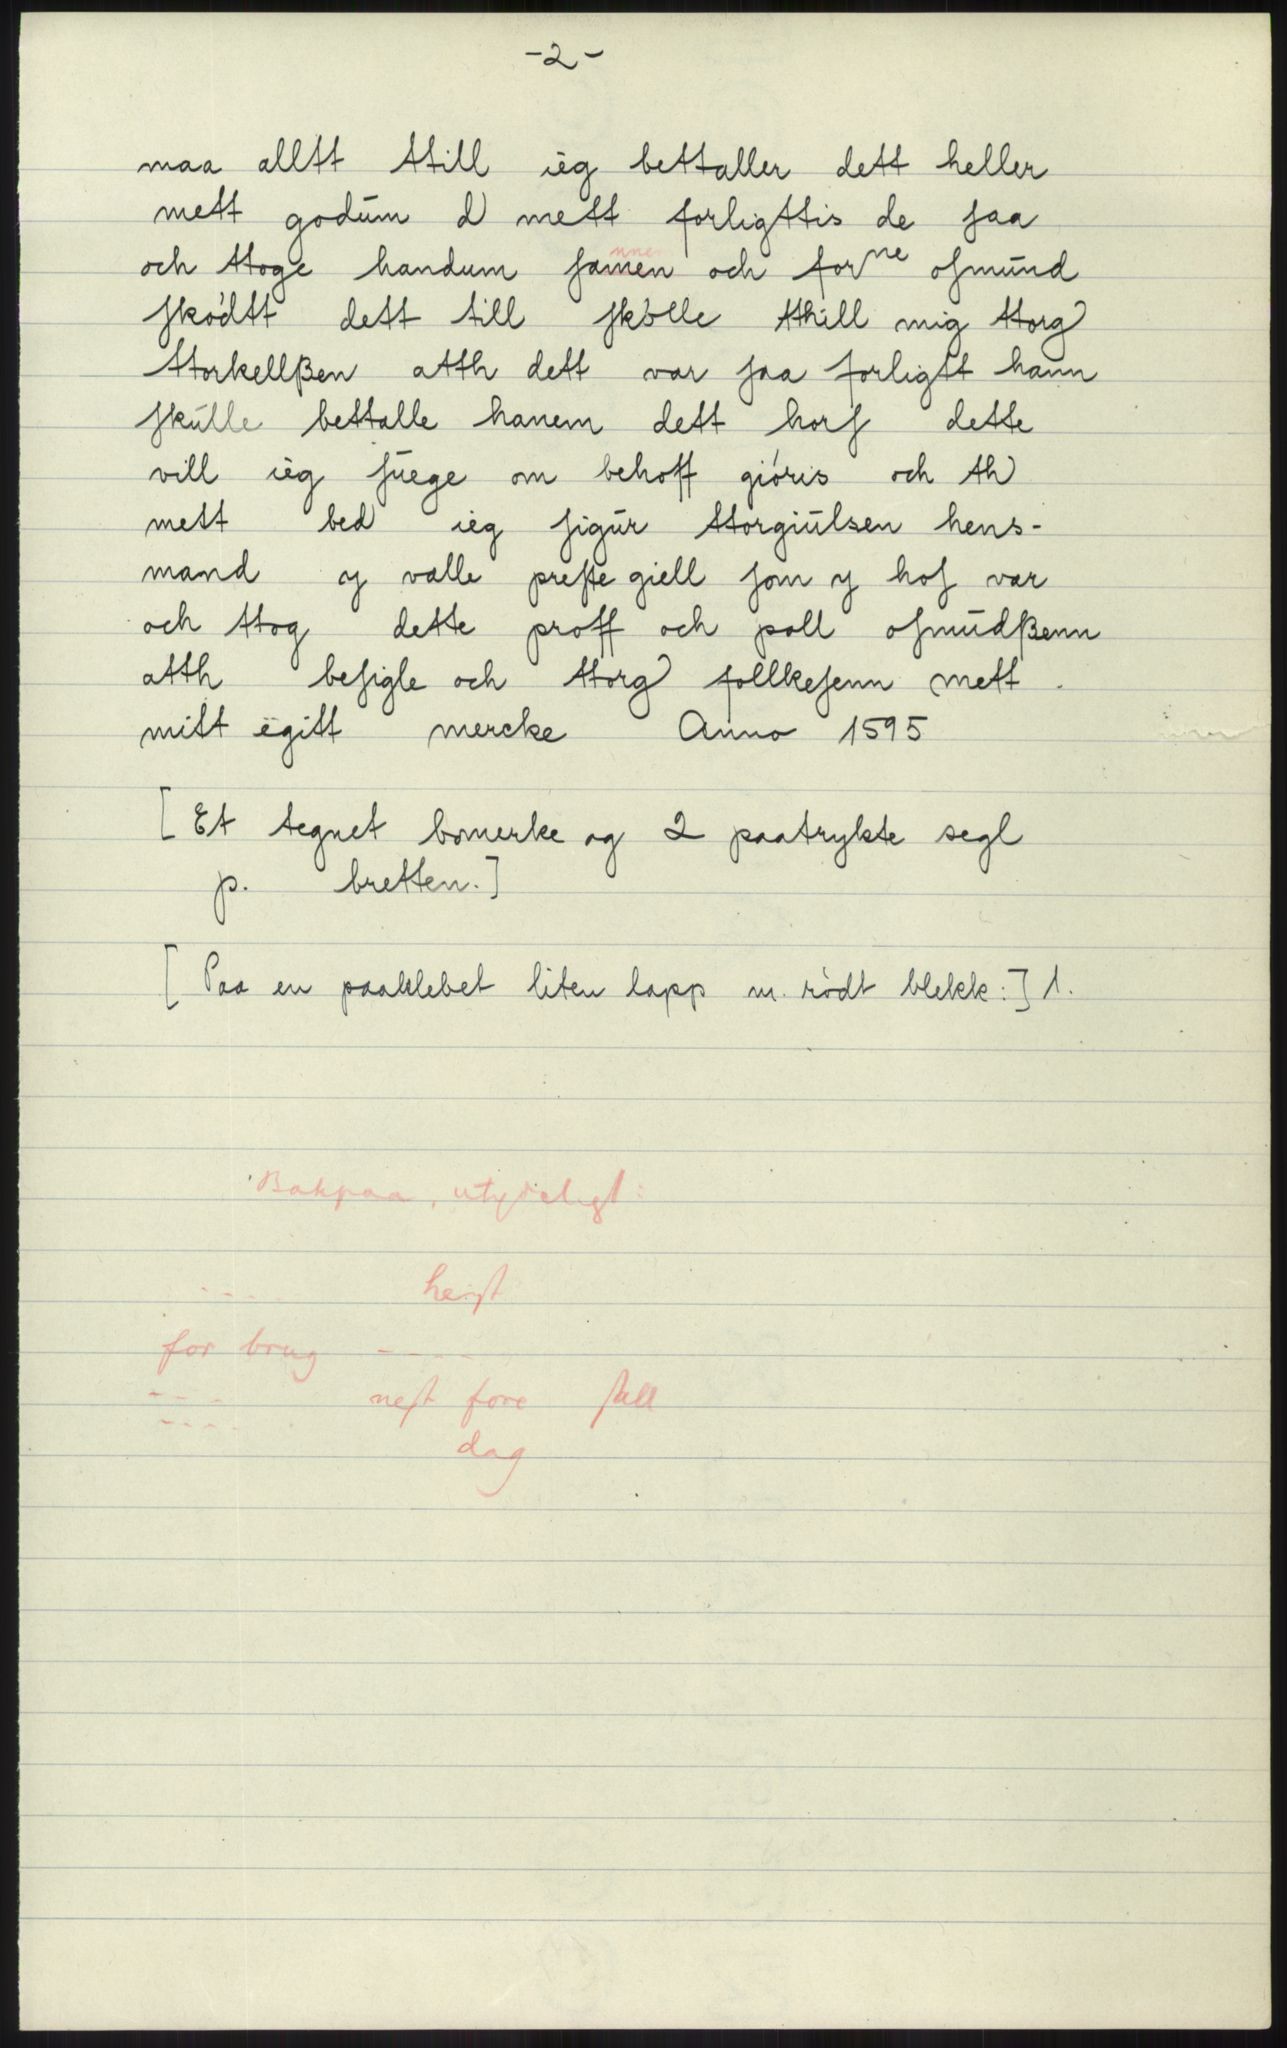 -2-
maa alltt ttill ieg bettaller dett heller
mett godúm d mett forligttis de ſaa
och ttoge handum ſamen och forne oſmúnd
nne
ſkódtt dett till ſkólle tthill mig ttorg
ttorkellßen atth dett var ſaa forligtt hann
ſkúlle bettalle hanem dett horſ dette
vill ieg ſúege om behoff gióris och th
mett bed ieg ſigúr ttorgiúlsen hens-
mand y valle preſte giell ſom y hoſ var
och ttog dette proff och poll oſmúdßenn
atth beſigle och ttorg follkeſenn mett
mitt ëgitt mercke Anno 1595
[Et tegnet bomerke og 2 paatrykte segl
p. bretten.]
[Paa en paaklebet liten lapp m. rødt blekk:] 1.
Bakpaa, utydeligt:
---- heſt
for brug ----
--- neſt fore ſkll
---- dag